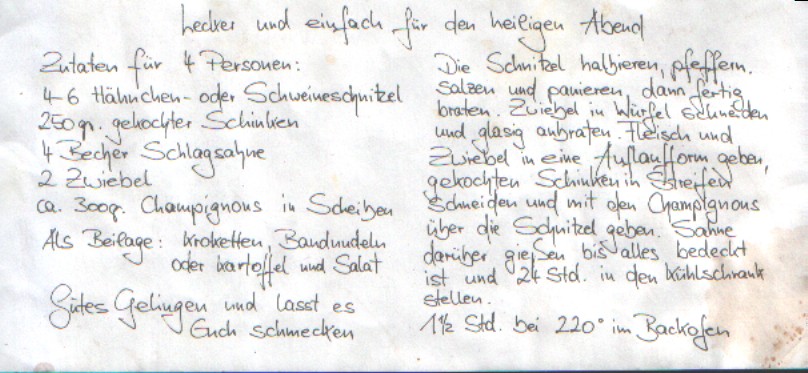 Lecker und einfach für den heiligen Abend
Zutaten für 4 Personen:
4-6 Hähnchen- oder Schweineschnitzel
250 gr. gekochter Schinken
4 Becher Schlagsahne
2 Zwiebel
ca. 300gr. Champignons in Scheiben
Als Beilage: Kroketten, Bandnudeln
oder Kartoffel und Salat
Gutes Gelingen und lasst es
Euch schmecken
Die Schnitzel halbieren, pfeffern.
Salzen und panieren, dann fertig
braten. Zwiebel in Würfel schneiden
und glasig anbraten. Fleisch und
Zwiebel in eine Auflaufform geben,
gekochten Schinken in Streifen
Schneiden und mit den Champignons
über die Schnitzel geben. Sahne
darüber gießen bis alles bedeckt
ist und 24 Std. in den Kühlschrank
stellen.
1½ Std. bei 220° im Backofen